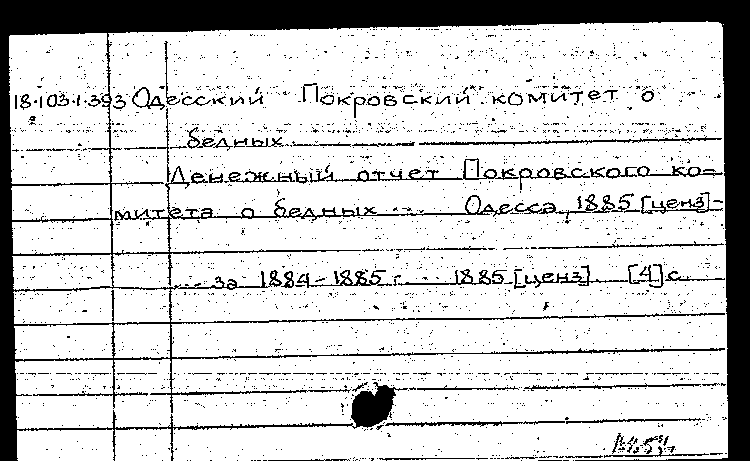 18.103.1.393 Одесский Покровский комитет о
бедных.
Денежный отчет Покровского ко=
митета о бедных ... Одесса, 1885 [ценз]-
... за 1884-1885 г. ... 1885 [ценз]. [4] с.